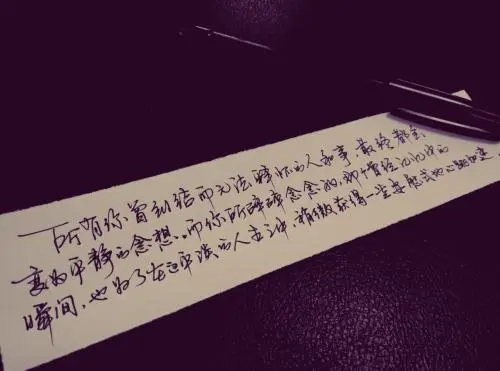 所有你曾纠结而无法释怀的人和事，最终都会
变为平静的念想。而你所碎碎念念的，那曾经记忆中的
瞬间，也为了在这平淡的人生之中，稍微获得一些安慰式的心跳